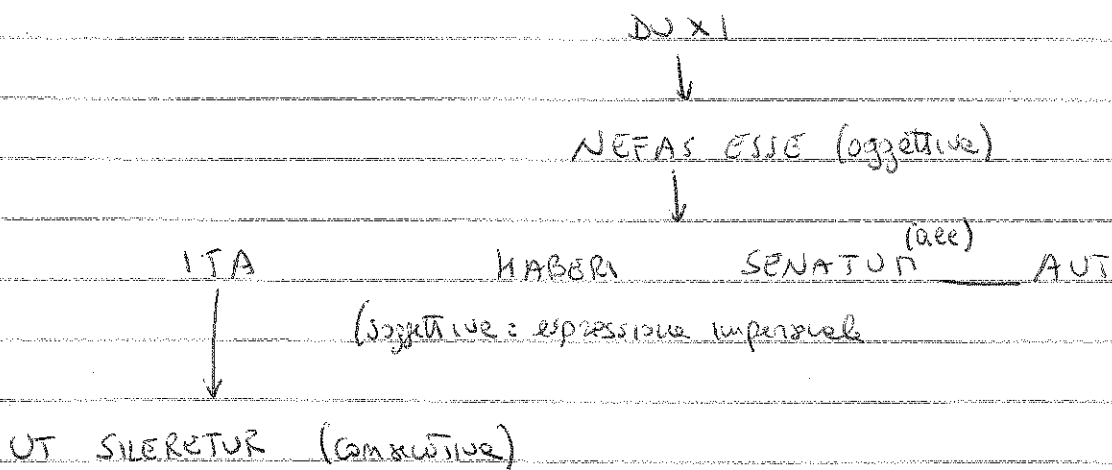 DUXI
NEFAS ESSE (oggettiva)
(acc)
ITA HABERI SENATUM AUT
(soggettiva: espressione impersonale
UT SILERETUR (consecutiva)